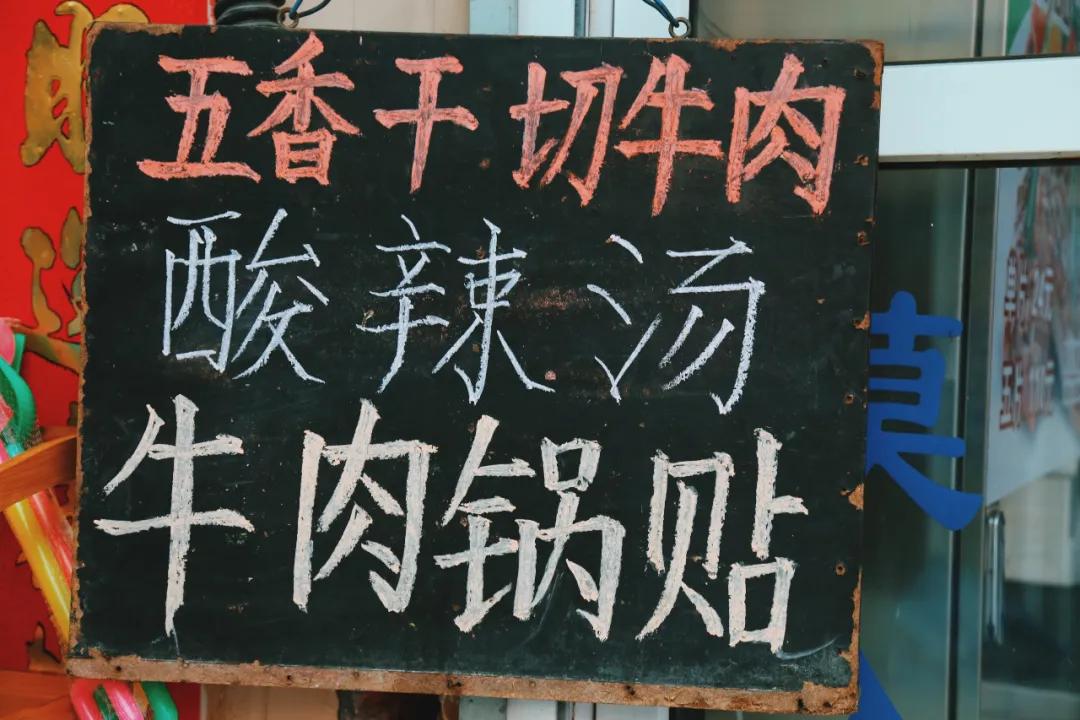 五香干切牛肉
酸辣汤
牛肉锅贴